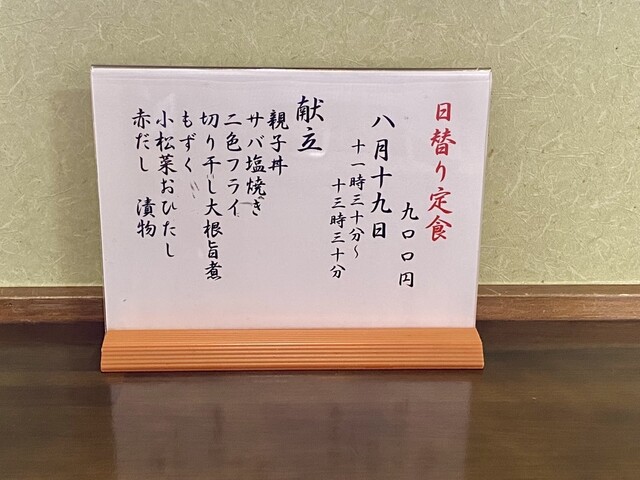 日替り定食
九〇〇円
八月十九日
十一時三十分〜
十三時三十分
献立
親子丼
サバ塩焼き
二色フライ
切り干し大根旨煮
もずく
小松菜おひたし
赤だし 漬物